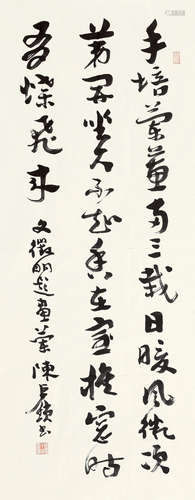 手培蘭蕙兩三栽日暖風微次
第開坐久不知香在室推窗時
有蝶飛來
文徵明題畫蘭 陳巨鎖書